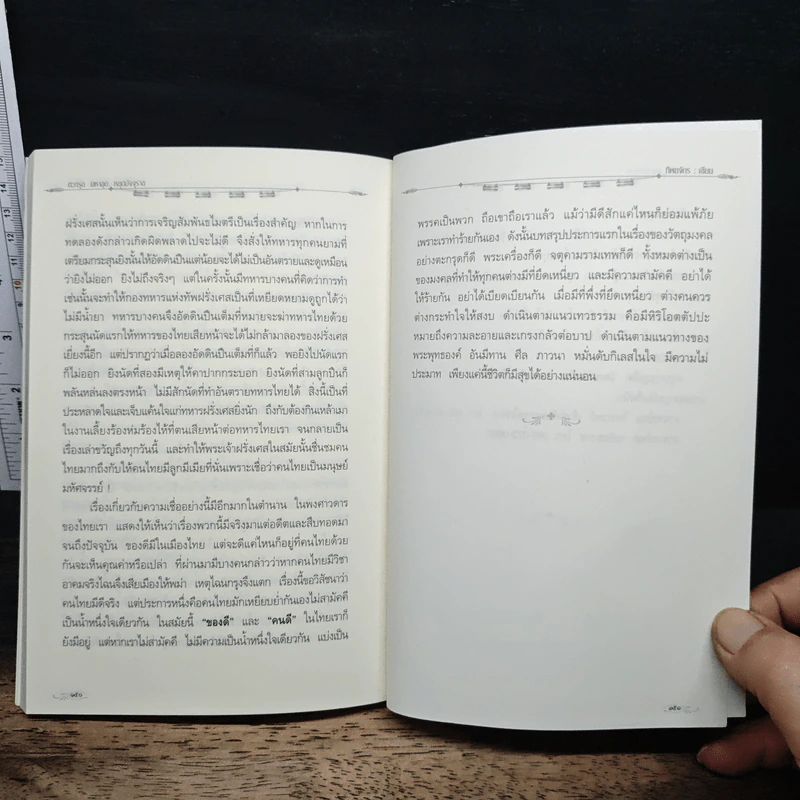 ตะกรุด มหาอุด หลุดปัจจุราช
ฝรั่งเศสนั้นเห็นว่าการเจริญสัมพันธไมตรีเป็นเรื่องสำคัญ หากในการ
ทดลองดังกล่าวเกิดผิดพลาดไปจะไม่ดี จึงสั่งให้ทหารทุกคนยามที่
เตรียมกระสุนยิงนั้นให้อัดดินปืนแต่น้อยจะได้ไม่เป็นอันตรายและดูเหมือน
ว่ายิงไม่ออก ยิงไม่ถึงจริงๆ แต่ในครั้งนั้นมีทหารบางคนที่คิดว่าการทำ
เช่นนั้นจะทำให้กองทหารแห่งทัพฝรั่งเศสเป็นที่เหยียดหยามดูถูกได้ว่า
ไม่มีน้ำยา ทหารบางคนจึงอัดดินปืนเต็มที่หมายจะฆ่าทหารไทยด้วย
กระสุนนัดแรกให้ทหารของไทยเสียหน้าจะได้ไม่กล้ามาลองของฝรั่งเศส
เยี่ยงนี้อีก แต่ปรากฏว่าเมื่อลองอัดดินปืนเต็มที่ก็แล้ว พอยิงไปนัดแรก
ก็ไม่ออก ยิงนัดที่สองมีเหตุให้คาปากกระบอก ยิงนัดที่สามลูกปืนก็
พลันหล่นลงตรงหน้า ไม่มีสักนัดที่ทำอันตรายทหารไทยได้ สิ่งนี้เป็นที่
ประหลาดใจและเจ็บแค้นใจแก่ทหารฝรั่งเศสยิ่งนัก ถึงกับต้องกินเหล้าเมา
ในงานเลี้ยงร้องห่มร้องไห้ที่ตนเสียหน้าต่อทหารไทยเรา จนกลายเป็น
เรื่องเล่าขวัญถึงทุกวันนี้ และทำให้พระเจ้าฝรั่งเศสในสมัยนั้นชื่นชมคน
ไทยมากถึงกับให้คนไทยมีลูกมีเมียที่นั่นเพราะเชื่อว่าคนไทยเป็นมนุษย์
มหัศจรรย์ !
เรื่องเกี่ยวกับความเชื่ออย่างนี้มีอีกมากในตำนาน ในพงศาวดาร
ของไทยเรา แสดงให้เห็นว่าเรื่องพวกนี้มีจริงมาแต่อดีตและสืบทอดมา
จนถึงปัจจุบัน ของดีมีในเมืองไทย แต่จะดีแค่ไหนก็อยู่ที่คนไทยด้วย
กันจะเห็นคุณค่าหรือเปล่า ที่ผ่านมามีบางคนกล่าวว่าหากคนไทยมีวิชา
อาคมจริงไฉนจึงเสียเมืองให้พม่า เหตุไฉนกรุงจึงแตก เรื่องนี้ขอวิสัชนาว่า
คนไทยมีดีจริง แต่ประการหนึ่งคือคนไทยมักเหยียบย่ำกันเองไม่สามัคคี
เป็นน้ำหนึ่งใจเดียวกัน ในสมัยนี้ “ของดี” และ “คนดี” ในไทยเราก็
ยังมีอยู่ แต่หากเราไม่สามัคคี ไม่มีความเป็นน้ำหนึ่งใจเดียวกัน แบ่งเป็น
๑๕๐
ทีหมจักร : เขียน
พรรคเป็นพวก ถือเขาถือเราแล้ว แม้ว่ามีดีสักแค่ไหนก็ย่อมแพ้ภัย
เพราะเราทำร้ายกันเอง ดังนั้นบทสรุปประการแรกในเรื่องของวัตถุมงคล
อย่างตะกรุดก็ดี พระเครื่องก็ดี จตุคามรามเทพก็ดี ทั้งหมดต่างเป็น
ของมงคลที่ทำให้ทุกคนต่างมีที่ยึดเหนี่ยว และมีความสามัคคี อย่าได้
ให้ร้ายกัน อย่าได้เบียดเบียนกัน เมื่อมีที่พึ่งที่ยึดเหนี่ยว ต่างคนควร
ต่างกระทำใจให้สงบ ดำเนินตามแนวเทวธรรม คือมีหิริโอตตัปปะ
หมายถึงความละอายและเกรงกลัวต่อบาป ดำเนินตามแนวทางของ
พระพุทธองค์ อันมีทาน ศีล ภาวนา หมั่นดับกิเลสในใจ มีความไม่
ประมาท เพียงแค่นี้ชีวิตก็มีสุขได้อย่างแน่นอน
๑๕๑